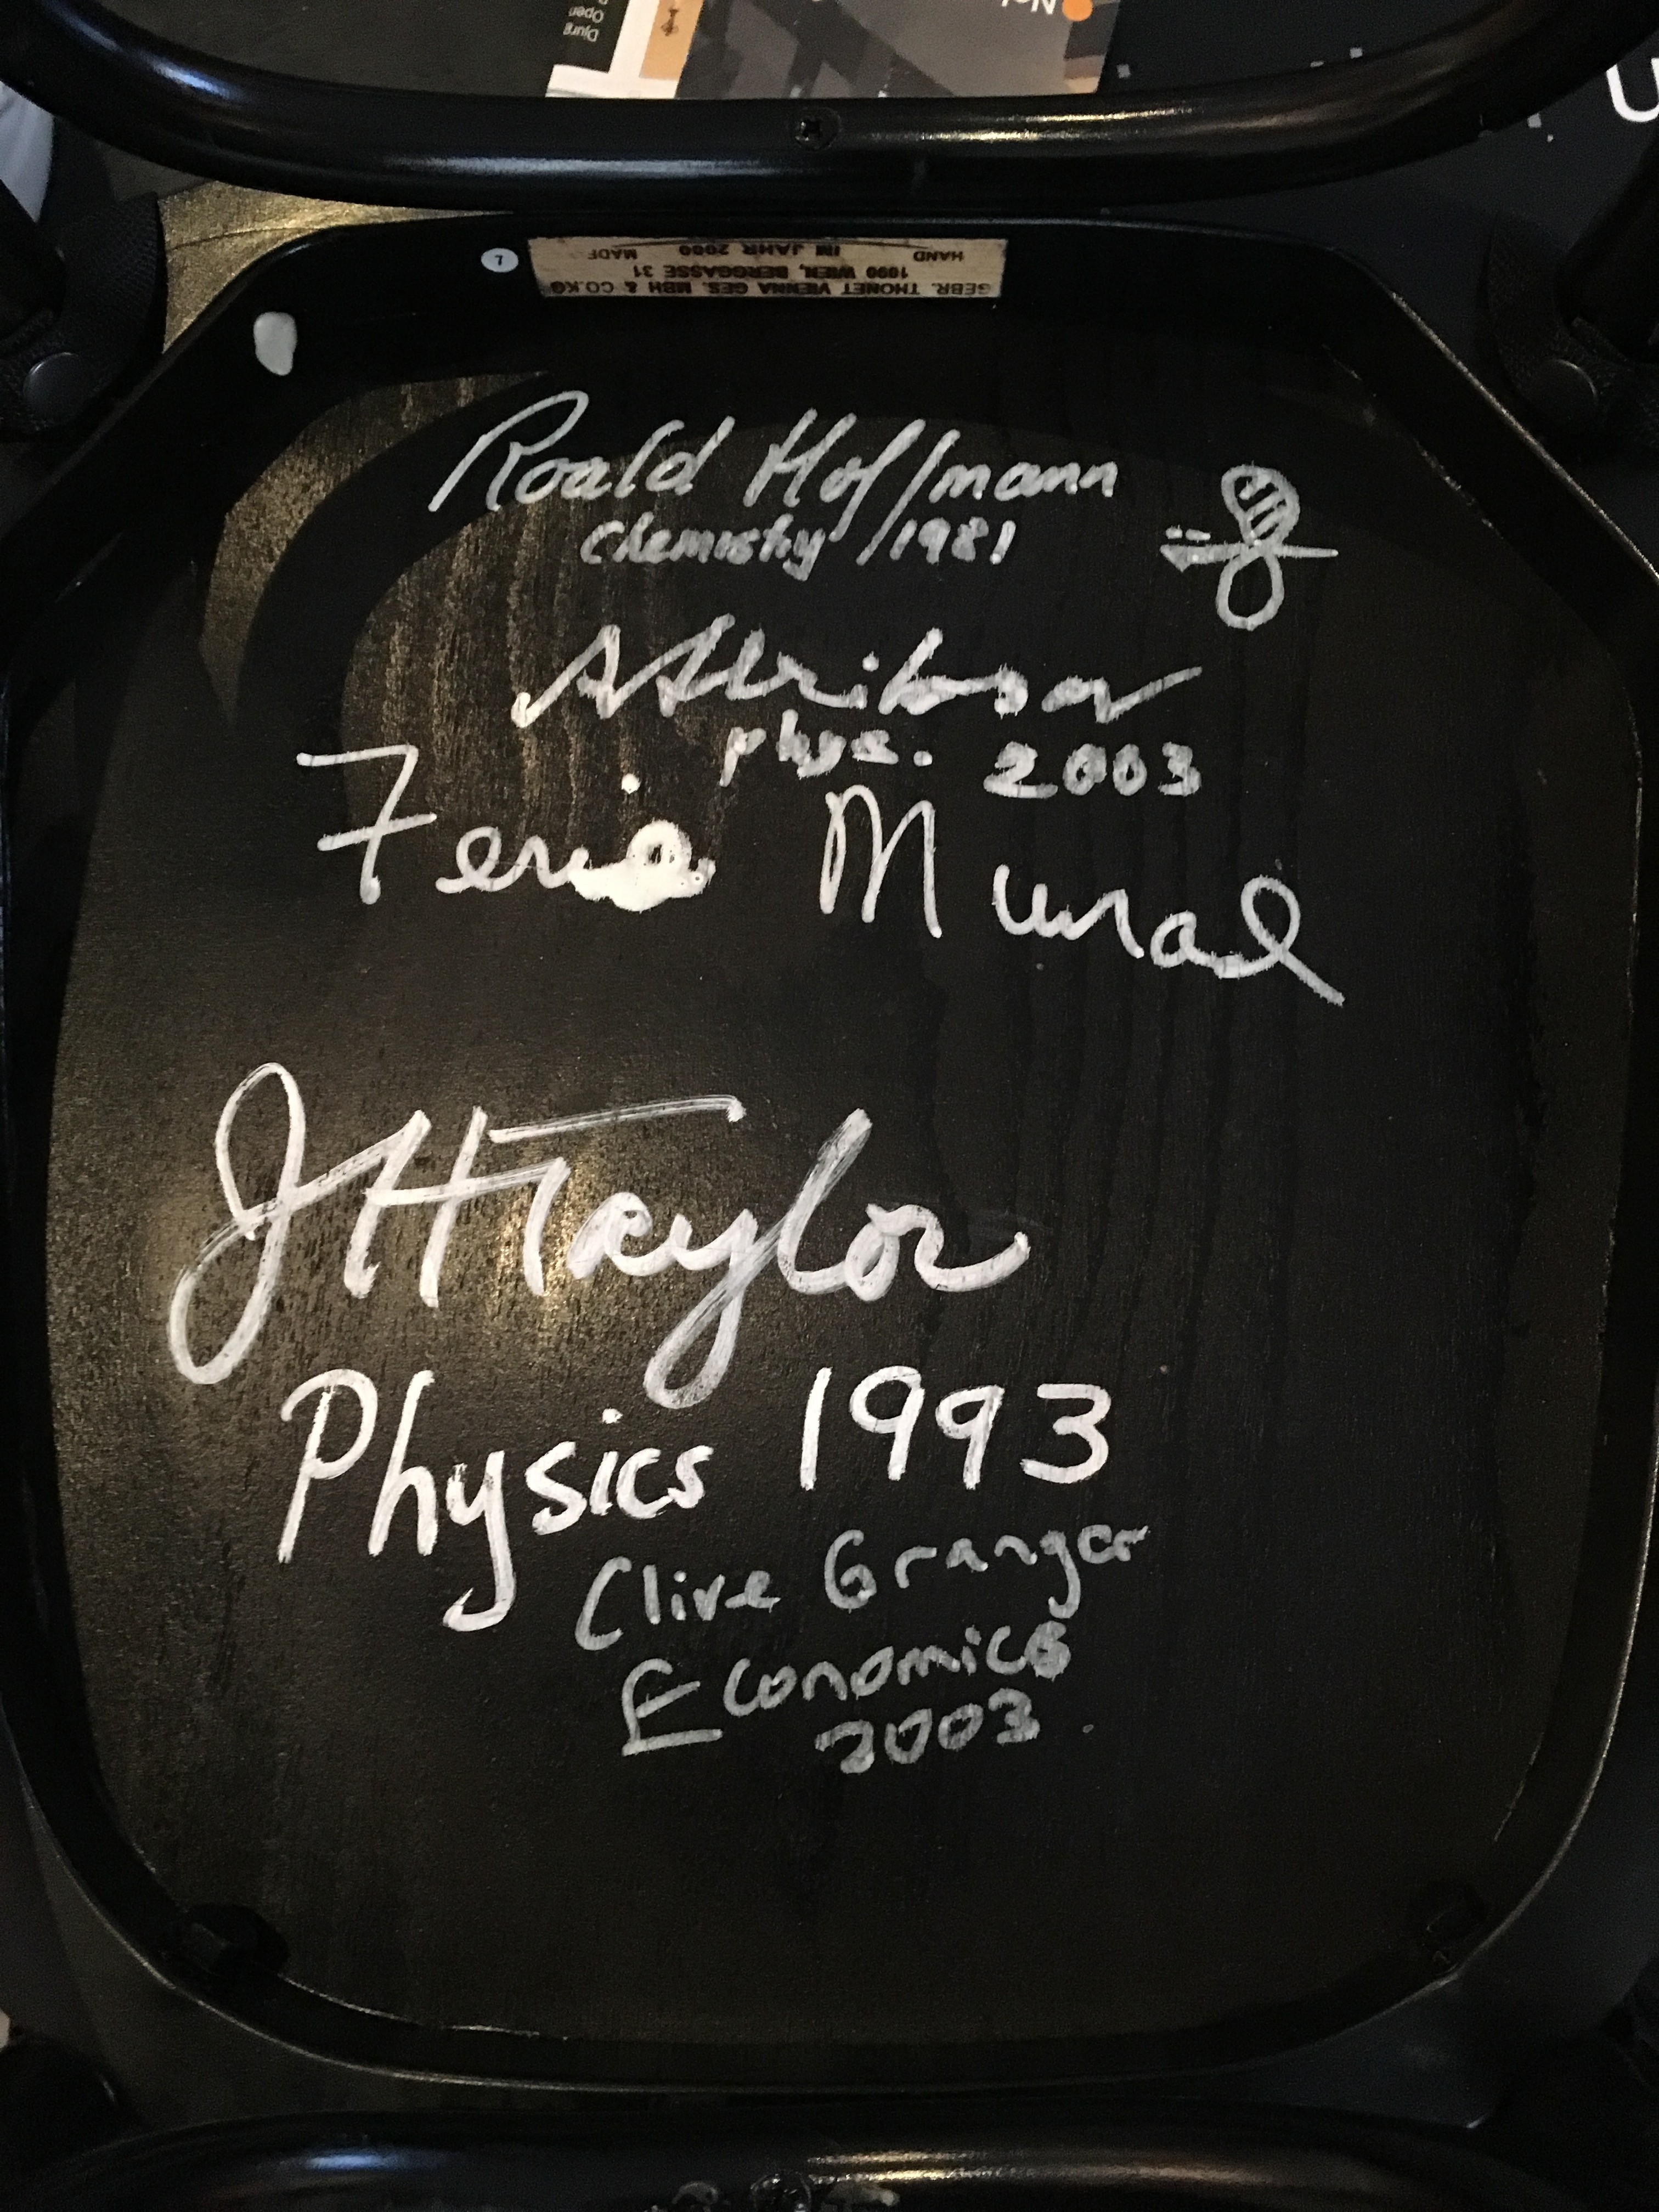 GEBR. THONET VIENNA GES. MBH & CO.KG
1090 WIEN, BERGGASSE 31
HAND MADE
IM JAHR 2000
7
Roald Hoffmann
Chemistry / 1981
AAbrikosov
phys. 2003
Ferid Murad
JHTaylor
Physics 1993
Clive Granger
Economics
2003